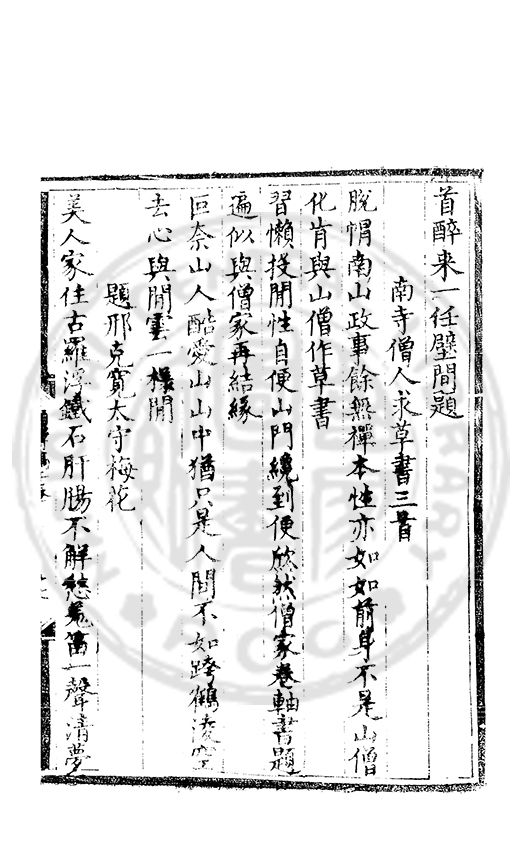 首醉来一任壁間題
南寺僧人求草書三首
脫帽南山政事餘無禪本性亦如如前身不是山僧
化肯與山僧作草書
習懶投閒性自便山門繞到便欣然僧家卷軸書題
遍似與僧家再結緣
叵奈山人酷愛山山中猶只是人間不如跨鶴淩空
去心與閒雲一樣閒
題邢克寬太守梅花
美人家住古羅浮鐵石肝腸不解愁羌笛一聲清夢